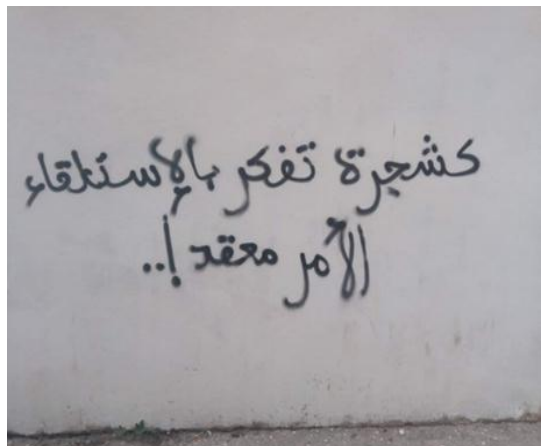 كشجرة تفكر بالإستلقاء
الأمر معقد !..